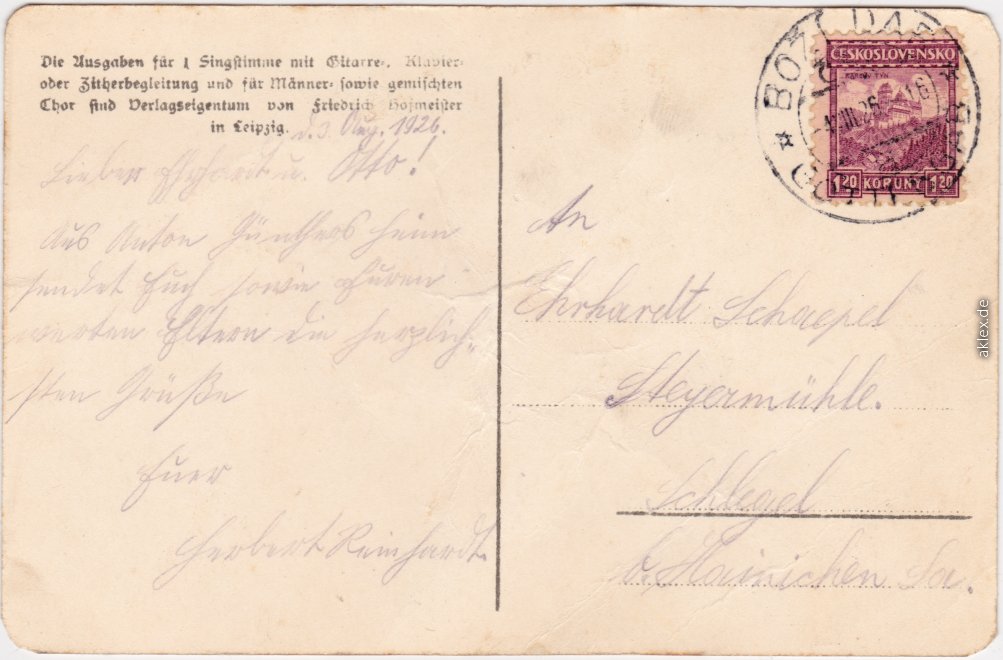 Die Ausgaben für 1 Singstimme mit Gitarre-, Klavier-
oder Zitherbegleitung und für Männer- sowie gemischten
Chor sind Verlagseigentum von Friedrich Hofmeister
in Leipzig.
d. 3. Aug. 1926.
Lieber Ehrhardt u. Otto!
Aus Anton Günthers Heim
sendet Euch sowie Euren
werten Eltern die herzlich-
sten Grüße
Euer
Herbert Reinhardt.
ČESKOSLOVENSKO
KARLŮV TÝN
1.20 KORUNY 1.20
BOŽÍ DAR
An
Ehrhardt Schaepel
Steyermühle.
Schlegel
b. Hainichen Sa.
aklex.de